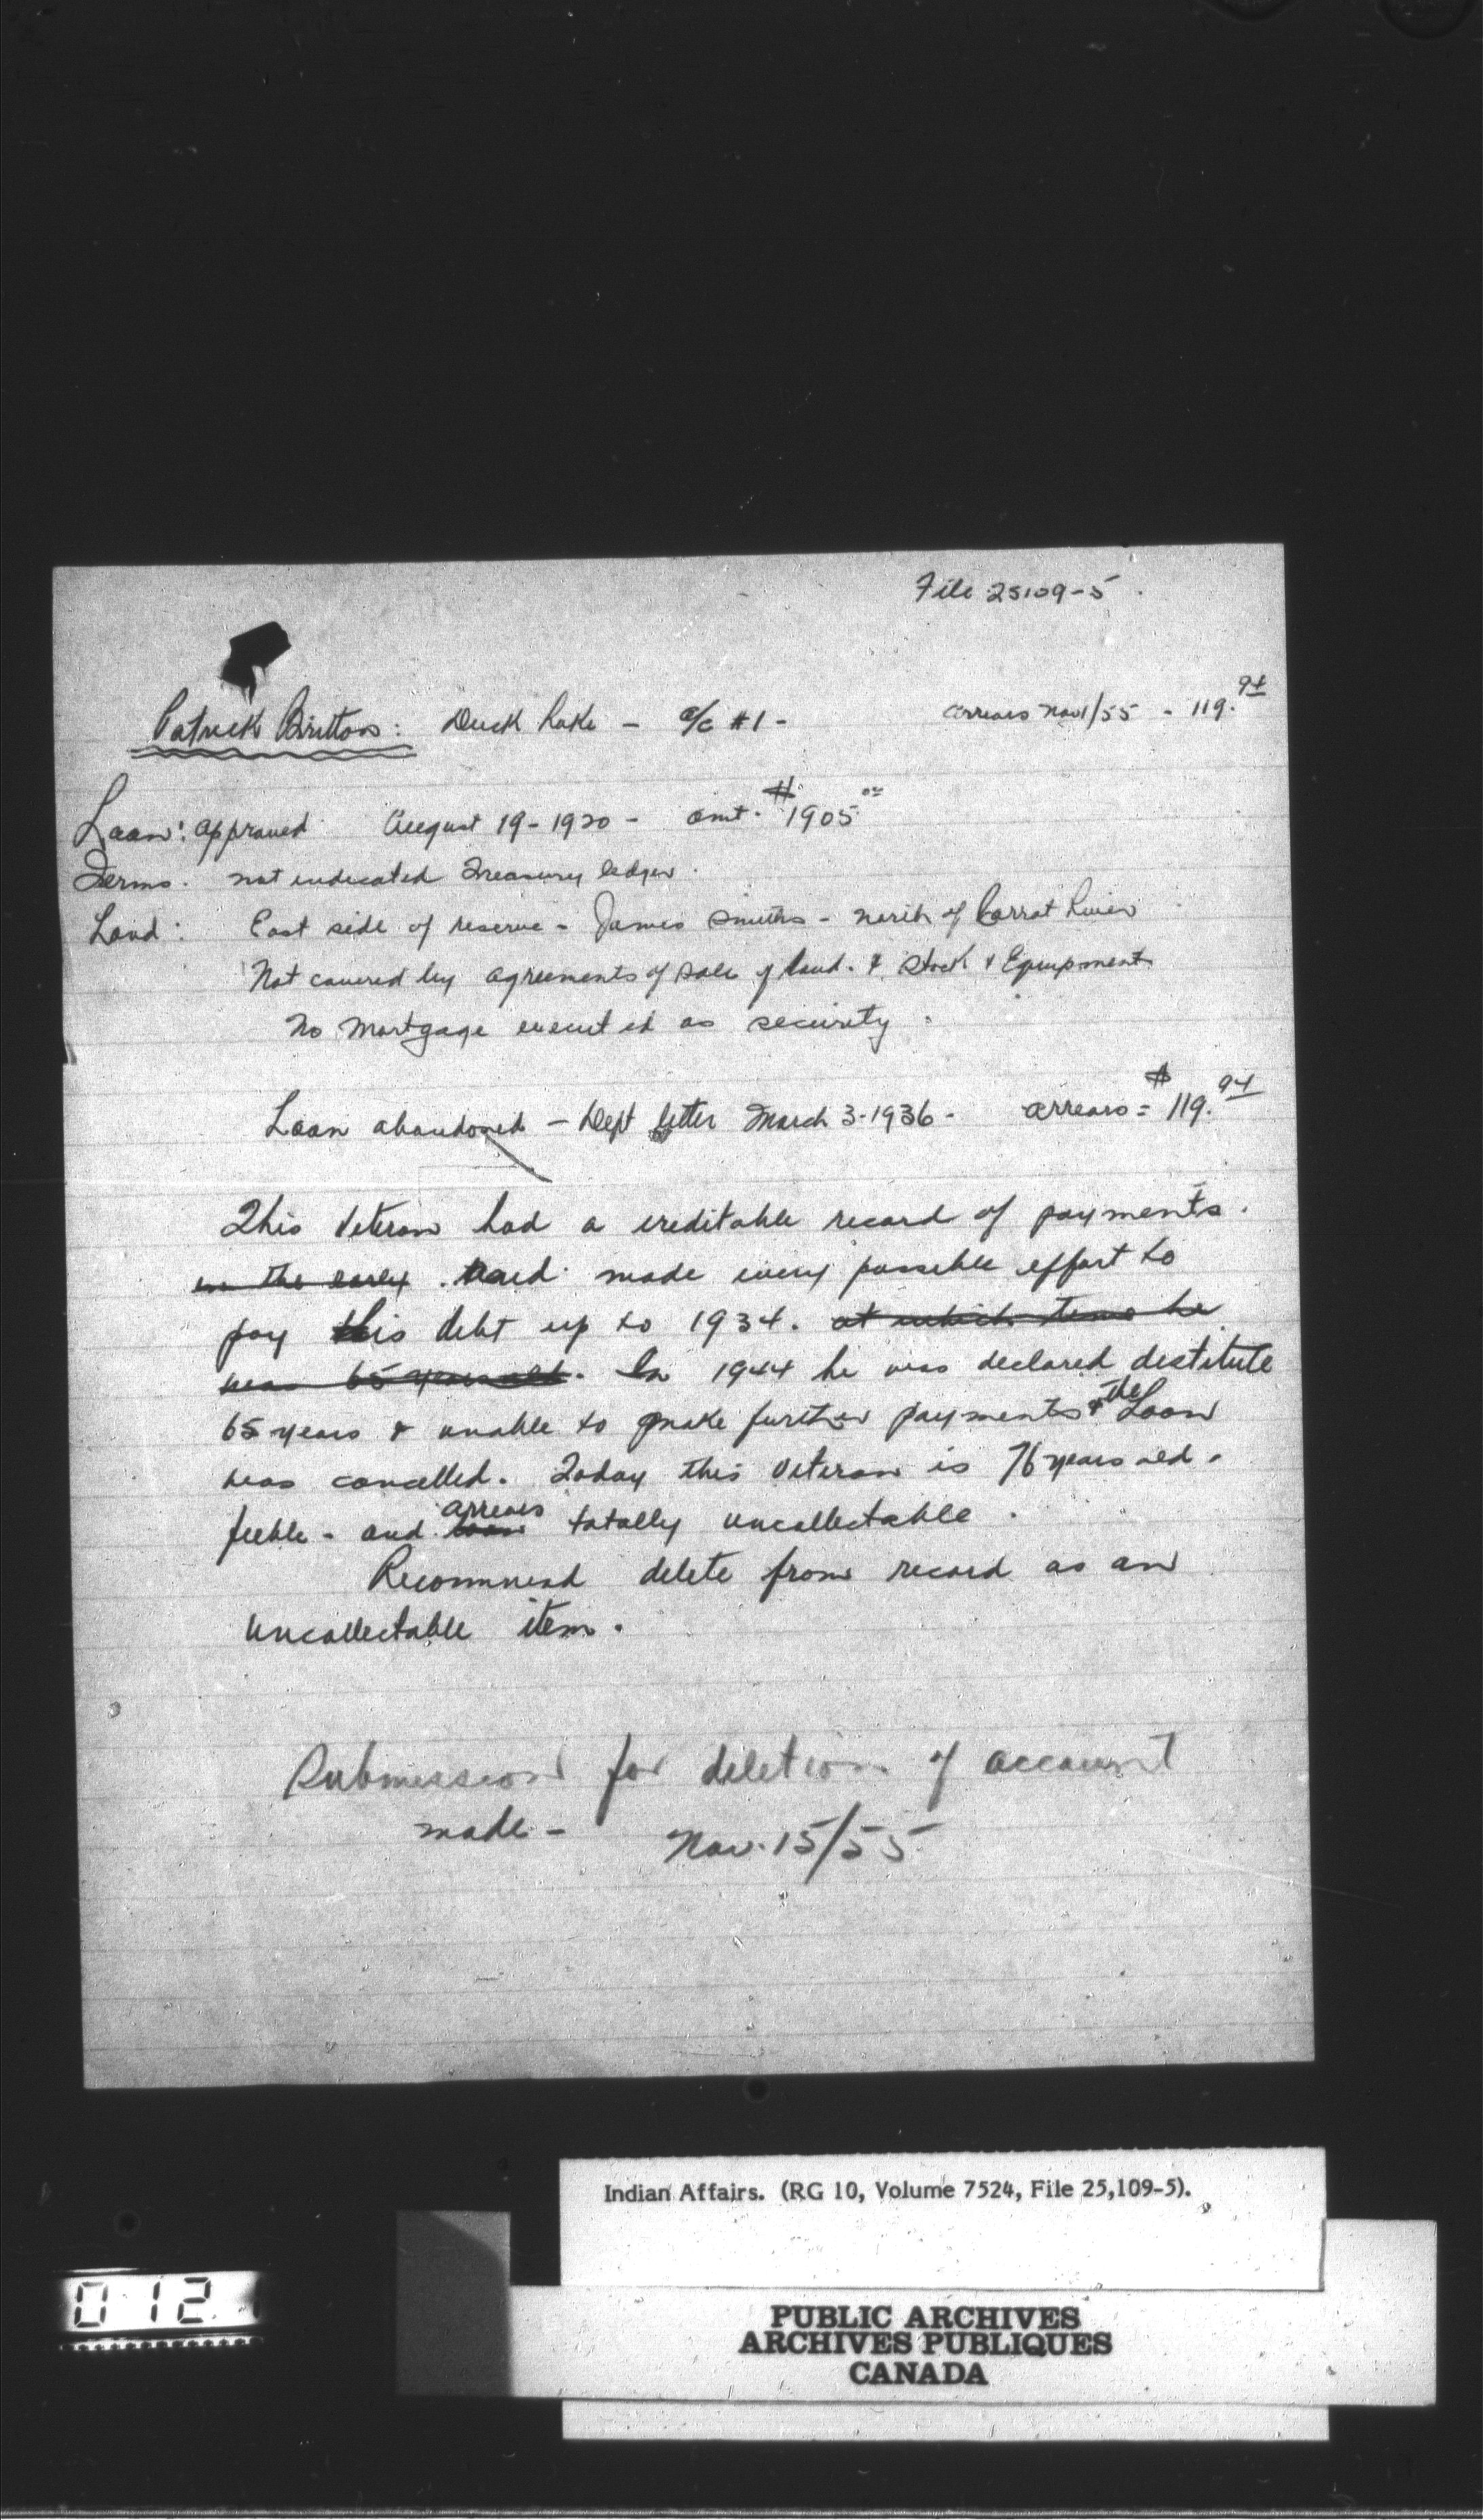 File 25109-5.
Patrick Brittain: Duck Lake - a/c #1 - arrears Nov 1/55 - 119.94
Loan: approved August 19-1920 - amt. $1905.00
Terms. not indicated Treasury ledger.
Land: East side of reserve - James Smiths - north of Carrot River
Not covered by agreements of sale of land. & stock & Equipment
No mortgage executed as security.
Loan abandoned - Dept letter March 3-1936 - arrears = $119.94
This Veteran had a creditable record of payments.
in the early. And made every possible effort to
pay this debt up to 1934. at which time he
was 65 years old. In 1944 he was declared destitute
65 years & unable to make further payments & the Loan
was cancelled. Today this Veteran is 76 years old.
feeble - and loan arrears totally uncollectable.
Recommend delete from record as an
uncollectable item.
Submission for deletion of account
made - Nov. 15/55
Indian Affairs. (RG 10, Volume 7524, File 25,109-5).
012
PUBLIC ARCHIVES
ARCHIVES PUBLIQUES
CANADA